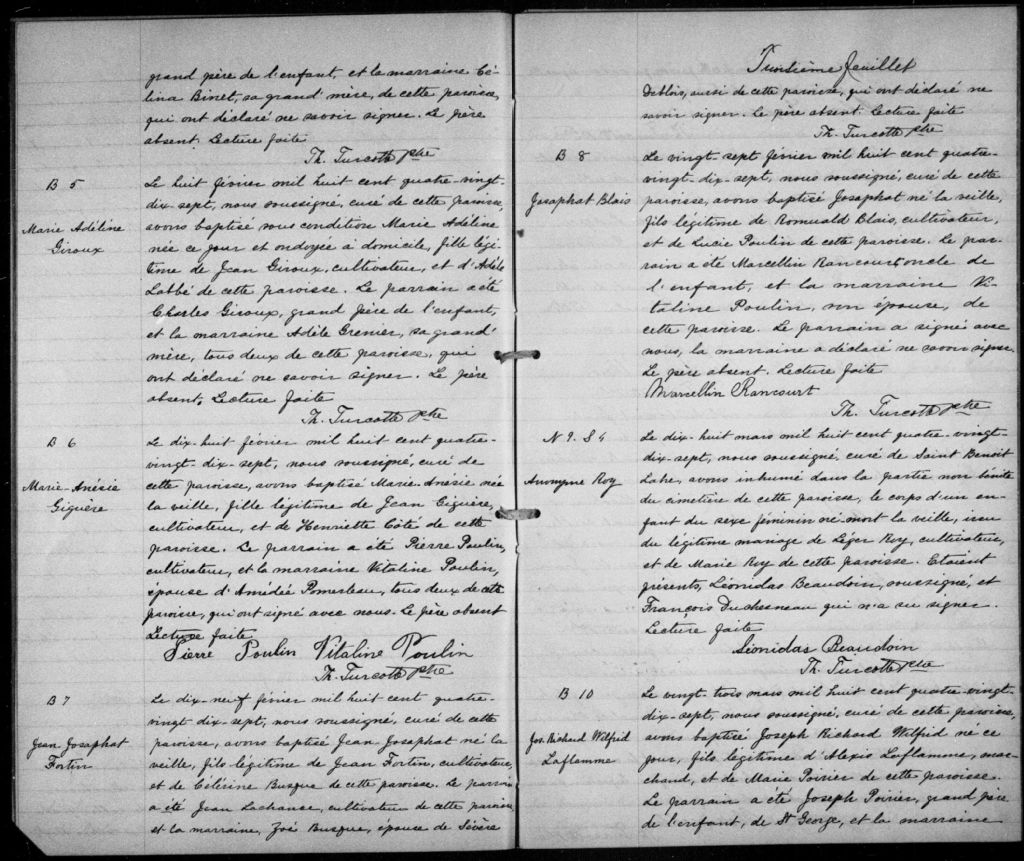 grand père de l'enfant, et la marraine Cé-
lina Binet, sa grand' mère, de cette paroisse,
qui ont déclaré ne savoir signer. Le père
absent. Lecture faite
Th. Turcotte Ptre
B 5
Marie Adéline
Giroux
Le huit février mil huit cent quatre-vingt-
dix-sept, nous soussigné, curé de cette paroisse,
avons baptisé sous condition Marie Adéline
née ce jour et ondoyée à domicile, fille légi-
time de Jean Giroux, cultivateur, et d'Adèle
Labbé de cette paroisse. Le parrain a été
Charles Giroux, grand père de l'enfant,
et la marraine Adèle Grenier, sa grand'
mère, tous deux de cette paroisse, qui
ont déclaré ne savoir signer. Le père
absent. Lecture faite
Th. Turcotte Ptre
B 6
Marie-Anésie
Giguère
Le dix-huit février mil huit cent quatre-
vingt-dix-sept, nous soussigné, curé de
cette paroisse, avons baptisé Marie Anésie née
la veille, fille légitime de Jean Giguère,
cultivateur, et de Henriette Côté de cette
paroisse. Le parrain a été Pierre Poulin,
cultivateur, et la marraine Vitaline Poulin,
épouse d'Amédée Pomerleau, tous deux de cette
paroisse, qui ont signé avec nous. Le père absent
Lecture faite
Pierre Poulin Vitaline Poulin
Th. Turcotte Ptre
B 7
Jean Josaphat
Fortin
Le dix-neuf février mil huit cent quatre-
vingt dix-sept, nous soussigné, curé de cette
paroisse, avons baptisé Jean Josaphat né la
veille, fils légitime de Jean Fortin, cultivateur,
et de Célérine Busque de cette paroisse. Le parrain
a été Jean Lachance, cultivateur de cette paroisse
et la marraine, Zoé Busque, épouse de Sévère
Feuillet
Deblois, aussi de cette paroisse, qui ont déclaré ne
savoir signer. Le père absent. Lecture faite
Th. Turcotte Ptre
B 8
Josaphat Blais
Le vingt sept février mil huit cent quatre-
vingt-dix-sept, nous soussigné, curé de cette
paroisse, avons baptisé Josaphat né la veille,
fils légitime de Romuald Blais, cultivateur,
et de Lucie Poulin de cette paroisse. Le par-
rain a été Marcellin Rancourt, oncle de
l'enfant, et la marraine Vi-
taline Poulin, son épouse, de
cette paroisse. Le parrain a signé avec
nous, la marraine a déclaré ne savoir signer.
Le père absent. Lecture faite
Marcellin Rancourt
Th. Turcotte Ptre
N 9. S 4
Anonyme Roy
Le dix-huit mars mil huit cent quatre-vingt-
dix-sept, nous soussigné, curé de Saint Benoit
Labre, avons inhumé dans la partie non bénite
du cimetière de cette paroisse, le corps d'un en-
fant du sexe féminin né mort la veille, issu
du légitime mariage de Léger Roy, cultivateur,
et de Marie Roy de cette paroisse. Etaient
présents, Léonidas Beaudoin, soussigné, et
François Duchesneau qui n'a su signer.
Lecture faite
Léonidas Beaudoin
Th. Turcotte Ptre
B 10
Jos. Richard Wilfrid
Laflamme
Le vingt-trois mars mil huit cent quatre-vingt-
dix-sept, nous soussigné, curé de cette paroisse,
avons baptisé Joseph Richard Wilfrid né ce
jour, fils légitime d'Alexis Laflamme, mar-
chand, et de Marie Poirier de cette paroisse.
Le parrain a été Joseph Poirier, grand père
de l'enfant, de St George, et la marraine